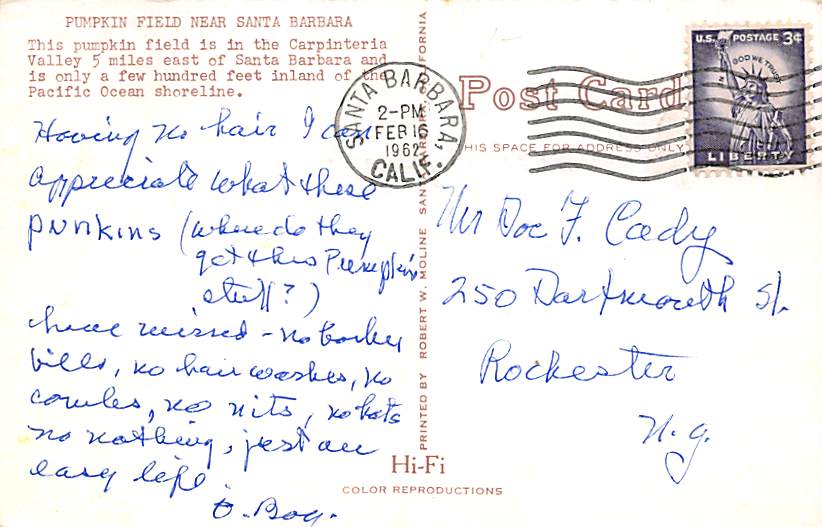 PUMPKIN FIELD NEAR SANTA BARBARA
This pumpkin field is in the Carpinteria
Valley 5 miles east of Santa Barbara and
is only a few hundred feet inland of the
Pacific Ocean shoreline.
Having no hair I can
appreciate what these
PUNKINS (where do they
get this Pumpkin
stuff?)
have missed - no barber
bills, no hair washes, no
combs, no nits, no hats
no nothing, just an
easy life.
O. Boy.
SANTA BARBARA,
2-PM
FEB 16
1962
CALIF.
PRINTED BY ROBERT W. MOLINE SANTA BARBARA, CALIFORNIA
Post Card
THIS SPACE FOR ADDRESS ONLY
U.S. POSTAGE 3¢
IN GOD WE TRUST
LIBERTY
Mr Doc F. Cady
250 Dartmouth St.
Rochester
N.Y.
Hi-Fi
COLOR REPRODUCTIONS